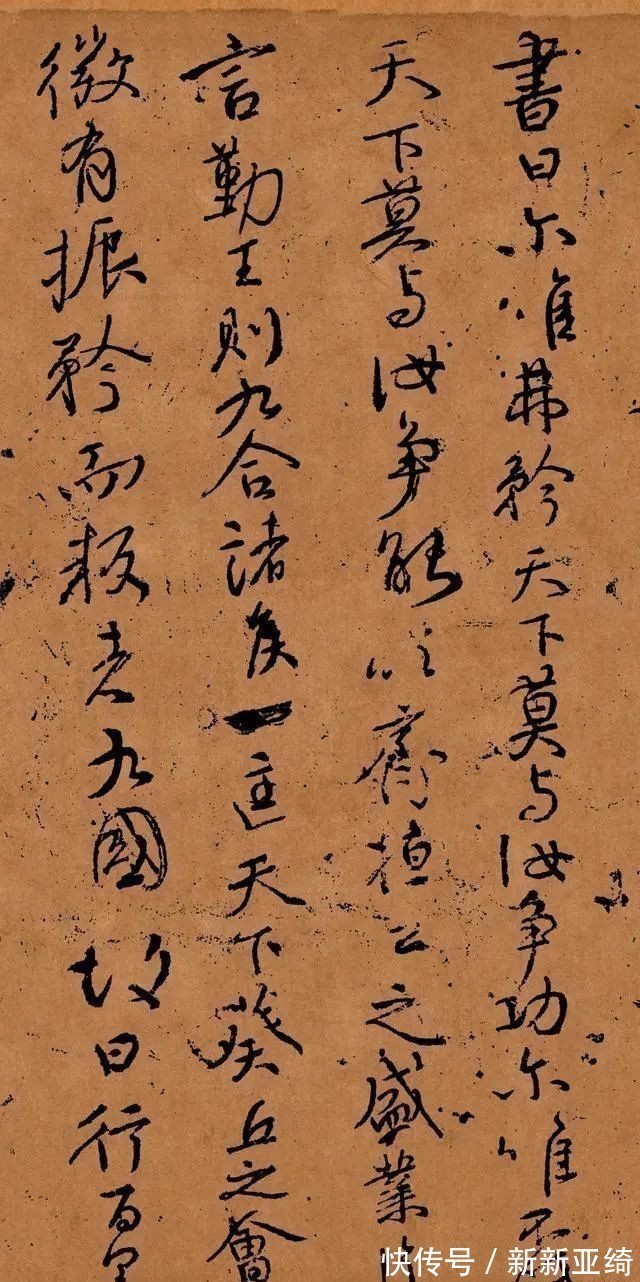 書曰尓唯弗矜天下莫与汝争功尓唯不
天下莫与汝争能以齊桓公之盛業
言勤王則九合諸侯一匡天下葵丘之會
微有振矜而叛者九國故曰行百里
快传号／新新亚绮